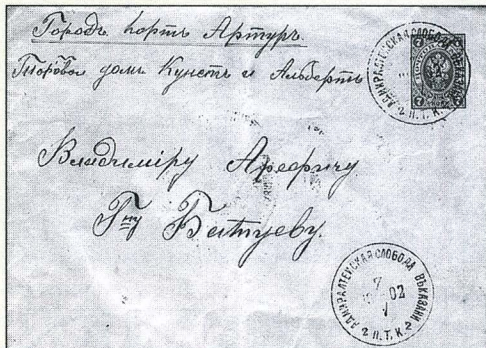 Городъ Портъ Артуръ.
Торговой домъ Кунстъ и Альбертъ
Владиміру Арефичу
Гну Батуеву.
АДМИРАЛТЕЙСКАЯ СЛОБОДА ВЪ КАЗАНИ
2 П. Т. К. 2
7
7
АДМИРАЛТЕЙСКАЯ СЛОБОДА ВЪ КАЗАНИ
7
02
V
2 П. Т. К. 2